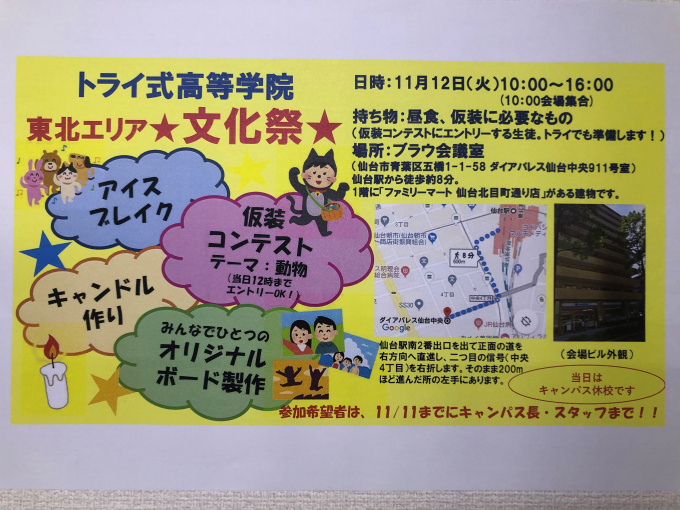 トライ式高等学院
東北エリア★文化祭★
アイス
ブレイク
仮装
コンテスト
テーマ：動物
(当日12時まで
エントリーOK！)
キャンドル
作り
みんなでひとつの
オリジナル
ボード製作
日時：11月12日(火)10:00～16:00
(10:00会場集合)
持ち物：昼食、仮装に必要なもの
(仮装コンテストにエントリーする生徒。トライでも準備します！)
場所：ブラウ会議室
(仙台市青葉区五橋1-1-58 ダイアパレス仙台中央911号室)
仙台駅から徒歩約8分。
1階に「ファミリーマート 仙台北目町通り店」がある建物です。
仙台駅
3丁目
仙台朝市
8分
600m
4丁目
SS30
ダイアパレス仙台中央
Google
(会場ビル外観)
仙台駅南2番出口を出て正面の道を
右方向へ直進し、二つ目の信号(中央
4丁目)を右折します。そのまま200m
ほど進んだ所の左手にあります。
当日は
キャンパス休校です
参加希望者は、11/11までにキャンパス長・スタッフまで！！